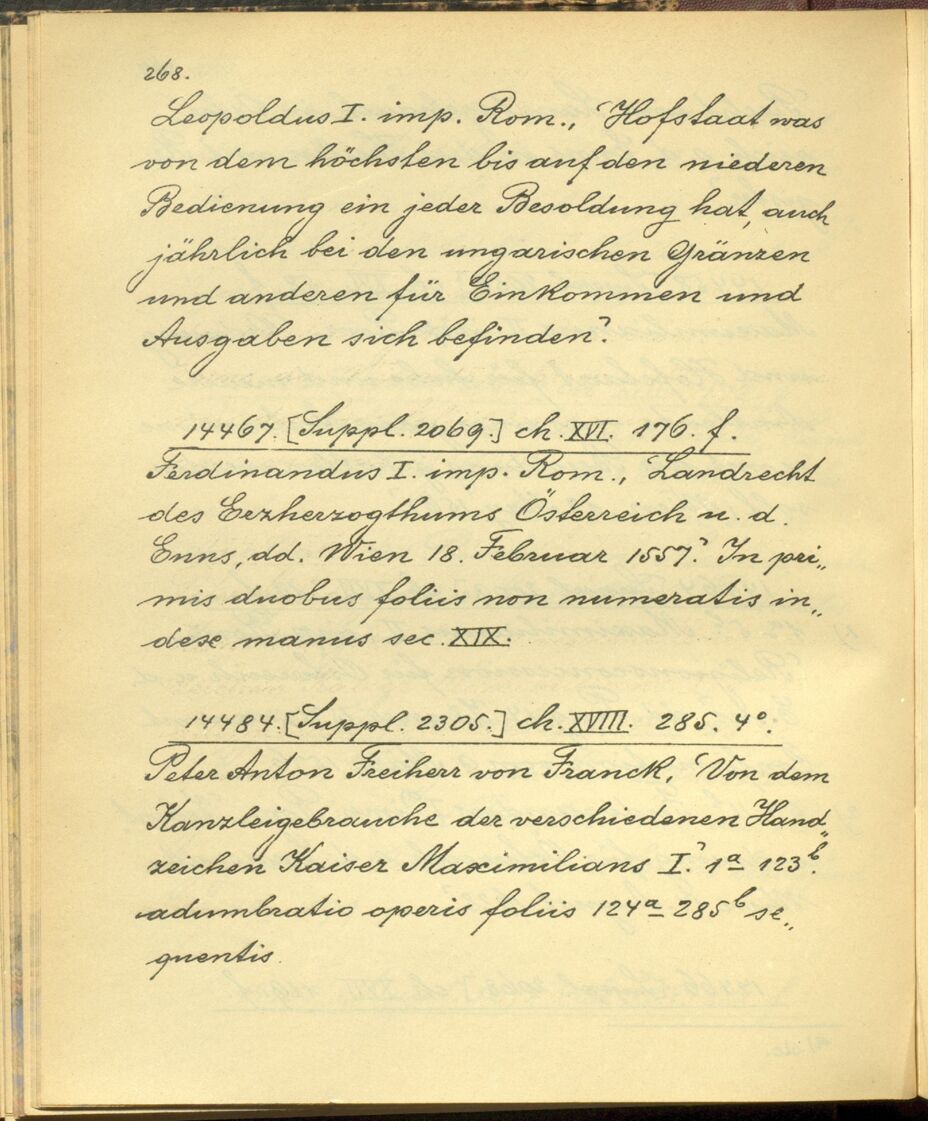 268.
Leopoldus I. imp. Rom., 'Hofstaat was
von dem höchsten bis auf den niederen
Bedienung ein jeder Besoldung hat, auch
jährlich bei den ungarischen Gränzen
und anderen für Einkommen und
Ausgaben sich befinden'.
14467. [Suppl. 2069.] ch. XVI. 176. f.
Ferdinandus I. imp. Rom., 'Landrecht
des Erzherzogthums Österreich u. d.
Enns, dd. Wien 18. Februar 1557'. In pri„
mis duobus foliis non numeratis in„
dex manus sec. XIX.
14484. [Suppl. 2305.] ch. XVIII. 285. 4°.
Peter Anton Freiherr von Franck, 'Von dem
Kanzleigebrauche der verschiedenen Hand„
zeichen Kaiser Maximilians I.' 1a–123b.
adumbratio operis foliis 124a–285b se„
quentis.